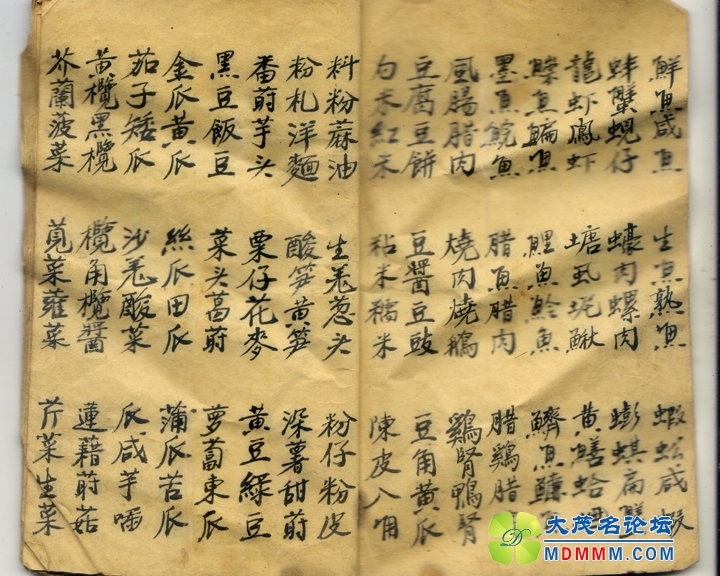 鮮魚咸魚 生魚熟魚 蝦蚣咸蝦
蚌蟹蜆仔 蠔肉螺肉 蟛蜞扁蟹
龍虾鳳虾 塘虱坭鰍 黄鱔蛤
魚鯿魚 鯉魚鯰魚 魚
墨魚鯇魚 腊魚腊肉 腊鷄腊
風腸腊肉 燒肉燒鵝 鷄腎鴨腎
豆腐豆餅 豆醬豆豉 豆角黄瓜
白米紅米 粘米糯米 陳皮八角
料粉蔴油 生羌葱头 粉仔粉皮
粉札洋麵 酸笋黄笋 深薯甜莳
番莳芋头 粟仔花麥 黄豆綠豆
黑豆飯豆 菜头葛莳 萝蔔東瓜
金瓜黄瓜 絲瓜田瓜 蒲瓜苦瓜
茄子矮瓜 沙羌酸菜 瓜咸芋
黄欖黑欖 欖角欖醬 蓮藕莳菇
芥蘭菠菜 莧菜蕹菜 芹菜生菜
大茂名论坛
MDMMM.COM